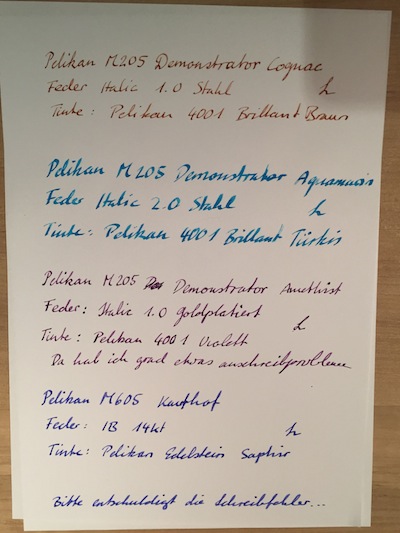 Pelikan M205 Demonstrator Cognac
Feder Italic 1.0 Stahl
Tinte: Pelikan 4001 Brillant Braun
Pelikan M205 Demonstrator Aquamarin
Feder Italic 2.0 Stahl
Tinte: Pelikan 4001 Brillant Türkis
Pelikan M205 Demonstrator Amethist
Feder: Italic 1.0 goldplatiert
Tinte: Pelikan 4001 Violett
Da hab ich grad etwas anschreibprobleme
Pelikan M605 Kaufhof
Feder: IB 14kt
Tinte: Pelikan Edelstein Saphir
Bitte entschuldigt die Schreibfehler...